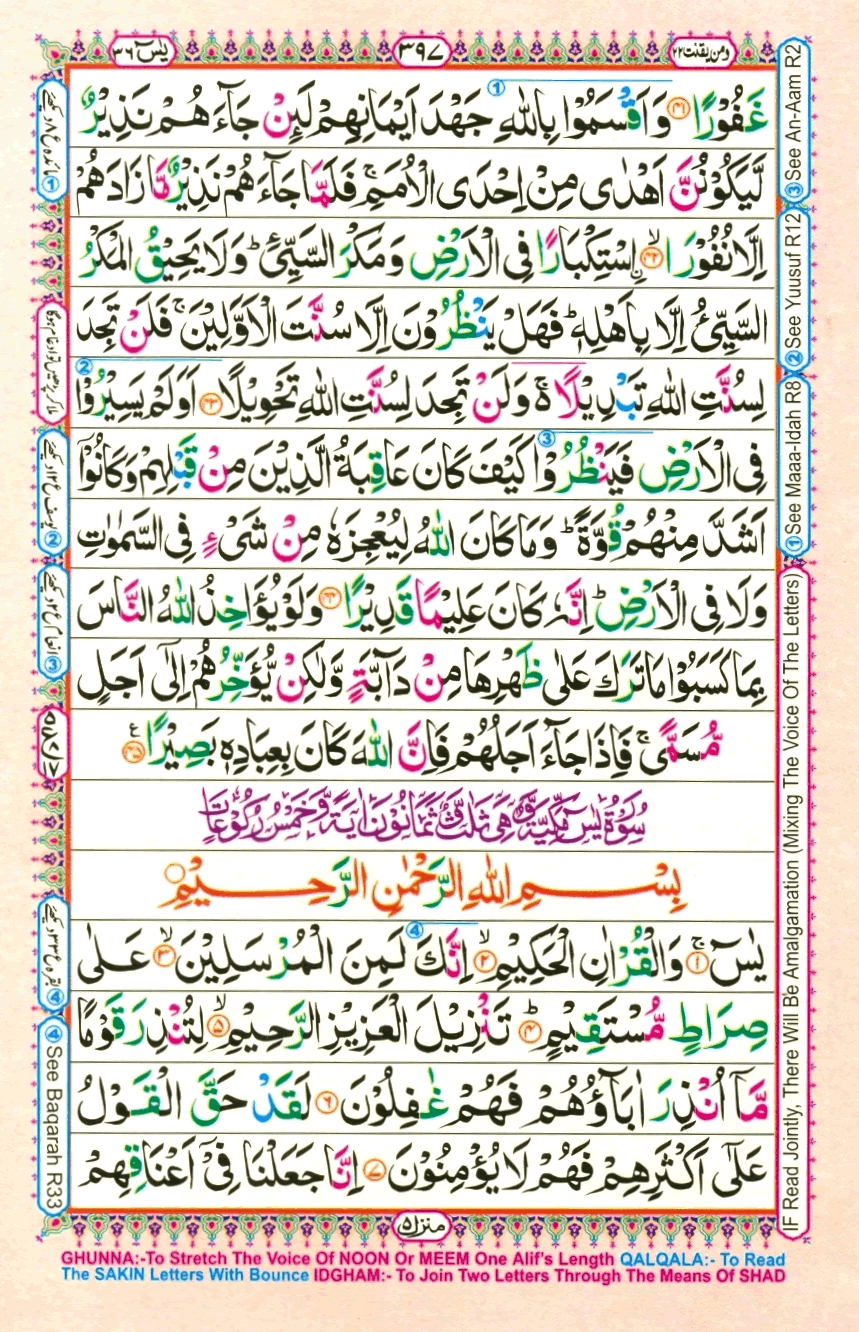 ومن يقنت ٢٢
٣٩٧
يٰسٓ ٣٦
غَفُوْرًا ﴿۴۱﴾ وَاَقْسَمُوْا بِاللّٰهِ جَهْدَ اَيْمَانِهِمْ لَئِنْ جَآءَهُمْ نَذِيْرٌ
لَّيَكُوْنُنَّ اَهْدٰى مِنْ اِحْدَى الْاُمَمِ ۚ فَلَمَّا جَآءَهُمْ نَذِيْرٌ مَّا زَادَهُمْ
اِلَّا نُفُوْرَا ﴿۴۲﴾ ۙ اِسْتِكْبَارًا فِى الْاَرْضِ وَمَكْرَ السَّيِّئِ ؕ وَلَا يَحِيْقُ الْمَكْرُ
السَّيِّئُ اِلَّا بِاَهْلِهٖ ؕ فَهَلْ يَنْظُرُوْنَ اِلَّا سُنَّتَ الْاَوَّلِيْنَ ۚ فَلَنْ تَجِدَ
لِسُنَّتِ اللّٰهِ تَبْدِيْلًا ۚ۬ وَلَنْ تَجِدَ لِسُنَّتِ اللّٰهِ تَحْوِيْلًا ﴿۴۳﴾ اَوَلَمْ يَسِيْرُوْا
فِى الْاَرْضِ فَيَنْظُرُوْا كَيْفَ كَانَ عَاقِبَةُ الَّذِيْنَ مِنْ قَبْلِهِمْ وَكَانُوْۤا
اَشَدَّ مِنْهُمْ قُوَّةً ؕ وَمَا كَانَ اللّٰهُ لِيُعْجِزَهٗ مِنْ شَىْءٍ فِى السَّمٰوٰتِ
وَلَا فِى الْاَرْضِ ؕ اِنَّهٗ كَانَ عَلِيْمًا قَدِيْرًا ﴿۴۴﴾ وَلَوْ يُؤَاخِذُ اللّٰهُ النَّاسَ
بِمَا كَسَبُوْا مَا تَرَكَ عَلٰى ظَهْرِهَا مِنْ دَآبَّةٍ وَّلٰكِنْ يُّؤَخِّرُهُمْ اِلٰٓى اَجَلٍ
مُّسَمًّى ۚ فَاِذَا جَآءَ اَجَلُهُمْ فَاِنَّ اللّٰهَ كَانَ بِعِبَادِهٖ بَصِيْرًا ﴿۴۵﴾
سُوْرَةُ يٰسٓ مَكِّيَّةٌ وَّهِىَ ثَلٰثٌ وَّثَمَانُوْنَ اٰيَةً وَّخَمْسُ رُكُوْعَاتٍ
بِسْمِ اللّٰهِ الرَّحْمٰنِ الرَّحِيْمِ
يٰسٓ ﴿۱﴾ ۚ وَالْقُرْاٰنِ الْحَكِيْمِ ﴿۲﴾ ۙ اِنَّكَ لَمِنَ الْمُرْسَلِيْنَ ﴿۳﴾ ۙ عَلٰى
صِرَاطٍ مُّسْتَقِيْمٍ ﴿۴﴾ ؕ تَنْزِيْلَ الْعَزِيْزِ الرَّحِيْمِ ﴿۵﴾ ۙ لِتُنْذِرَ قَوْمًا
مَّاۤ اُنْذِرَ اٰبَآؤُهُمْ فَهُمْ غٰفِلُوْنَ ﴿۶﴾ لَقَدْ حَقَّ الْقَوْلُ
عَلٰٓى اَكْثَرِهِمْ فَهُمْ لَا يُؤْمِنُوْنَ ﴿۷﴾ اِنَّا جَعَلْنَا فِىْۤ اَعْنَاقِهِمْ
منزل ٥
① مائدہ ع ٨ دیکھئے
ملا کر پڑھیں تو ادغام ہوگا
② یوسف ع ١٢ دیکھئے
③ انعام ع ٢ دیکھئے
④ بقرہ ع ٣٣ دیکھئے
④ See Baqarah R33
③ See An-Aam R2
② See Yuusuf R12
① See Maaa-Idah R8
IF Read Jointly, There Will Be Amalgamation (Mixing The Voice Of The Letters)
GHUNNA:-To Stretch The Voice Of NOON Or MEEM One Alif's Length QALQALA:- To Read
The SAKIN Letters With Bounce IDGHAM:- To Join Two Letters Through The Means Of SHAD